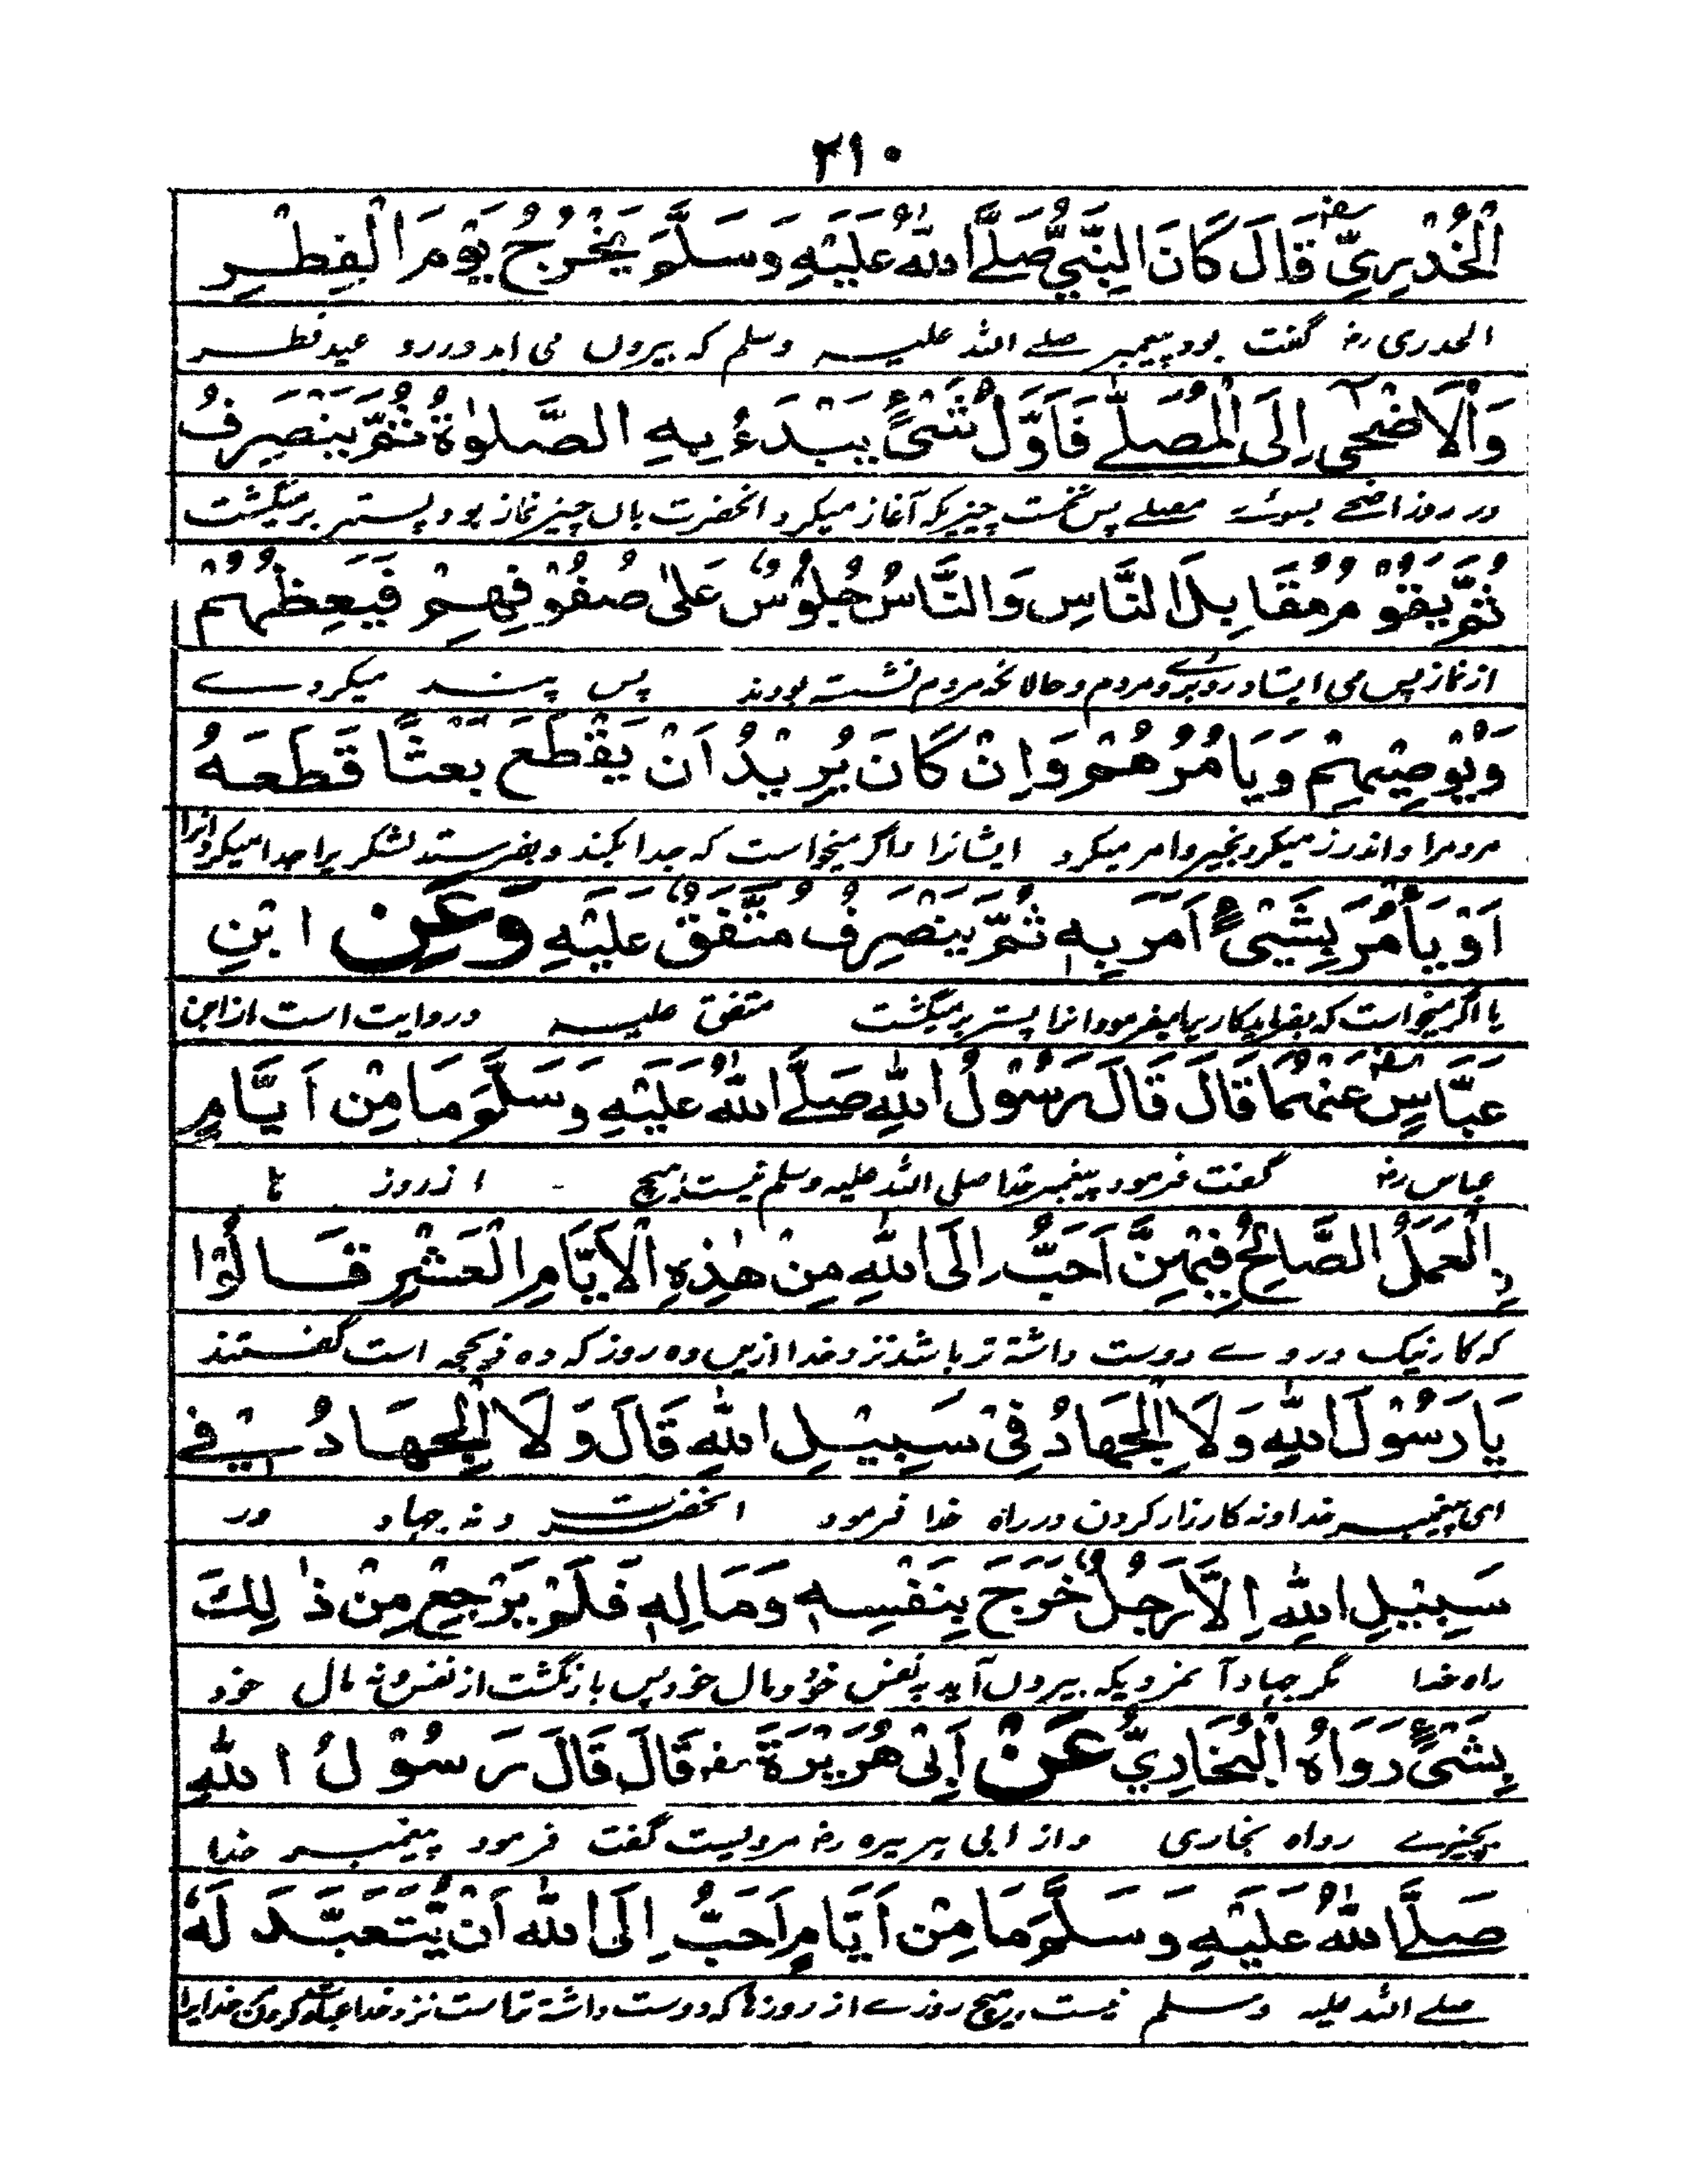 ۲۱۰
الْخُدْرِيِّ رض قَالَ كَانَ النَّبِيُّ صَلَّے اللهُ عَلَيْهِ وَسَلَّمَ يَخْرُجُ يَوْمَ الْفِطْرِ
الخدری رض گفت بود پیمبر صلے اللہ علیہ وسلم کہ بیروں می امد در روز عید فطر
وَالْاَضْحٰى اِلَى الْمُصَلّٰے فَاَوَّلُ شَىْءٍ يَبْدَءُ بِهِ الصَّلٰوةُ ثُمَّ يَنْصَرِفُ
در روز اضحے بسوئے مصلے پس نخست چیزیکہ آغاز میکرد انحضرت باں چیز نماز بود پستر برمیگشت
ثُمَّ يَقُوْمُ مُقَابِلَ النَّاسِ وَالنَّاسُ جُلُوْسٌ عَلٰى صُفُوْفِهِمْ فَيَعِظُهُمْ
از نماز پس می ایستاد روبروے مردم و حالانکہ مردم نشستہ بودند پس پند میکردے
وَيُوْصِيْهِمْ وَيَامُرُهُمْ وَاِنْ كَانَ يُرِيْدُ اَنْ يَقْطَعَ بَعْثًا قَطَعَهُ
مردمرا و اندرز میکرد بخیر و امر میکرد ایشانرا و اگر میخواست کہ جدا بکند و بفرستد لشکریرا جدا میکرد انرا
اَوْ يَأْمُرَ بِشَيْىءٍ اَمَرَ بِهٖ ثُمَّ يَنْصَرِفُ مُتَّفَقٌ عَلَيْهِ وَعَنِ ابْنِ
یا اگر میخواست کہ بفرماید کاریرا میفرمود انرا پستر برمیگشت متفق علیہ و روایت است از ابن
عَبَّاسٍ رض عَنْهُمَا قَالَ قَالَ رَسُوْلُ اللهِ صَلَّے اللهُ عَلَيْهِ وَسَلَّمَ مَا مِنْ اَيَّامٍ
عباس رض گفت فرمود پیغمبر خدا صلی اللہ علیہ وسلم نیست ہیچ از روز ہا
ِالْعَمَلُ الصَّالِحُ فِيْهِنَّ اَحَبُّ اِلَى اللهِ مِنْ هٰذِهِ الْاَيَّامِ الْعَشْرِ قَالُوْا
کہ کار نیک در وے دوست داشتہ تر باشد نزد خدا ازیں دہ روز کہ دہ ذیحجہ است گفتند
يَا رَسُوْلَ اللهِ وَلَا الْجِهَادُ فِىْ سَبِيْلِ اللهِ قَالَ وَلَا الْجِهَادُ فِے
ای پیغمبر خدا و نہ کارزار کردن در راہ خدا فرمود انحضرت و نہ جہاد در
سَبِيْلِ اللهِ اِلَّا رَجُلٌ خَرَجَ بِنَفْسِهٖ وَمَالِهٖ فَلَمْ يَرْجِعْ مِنْ ذٰلِكَ
راہ خدا مگر جہاد آنمردیکہ بیروں آید بہ نفس خود و مال خود پس بازنگشت از نفس و نہ مال خود
بِشَىْءٍ رَوَاهُ الْبُخَارِيُّ عَنْ اَبِىْ هُرَيْرَةَ رض قَالَ قَالَ رَسُوْلُ اللهِ
بچیزے رواہ بخاری و از ابی ہریرہ رض مرویست گفت فرمود پیغمبر خدا
صَلَّے اللهُ عَلَيْهِ وَسَلَّمَ مَا مِنْ اَيَّامٍ اَحَبُّ اِلَى اللهِ اَنْ يُّتَعَبَّدَ لَهٗ
صلے اللہ علیہ وسلم نیست ہیچ روزے از روزہا کہ دوست داشتہ تر است نزد خدا عبادت کردن خدایرا